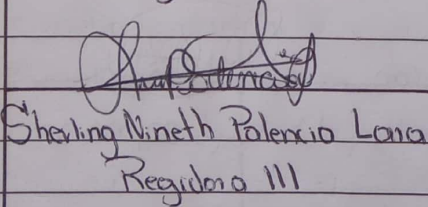 Sherling Nineth Palencia Lara
Regidora III